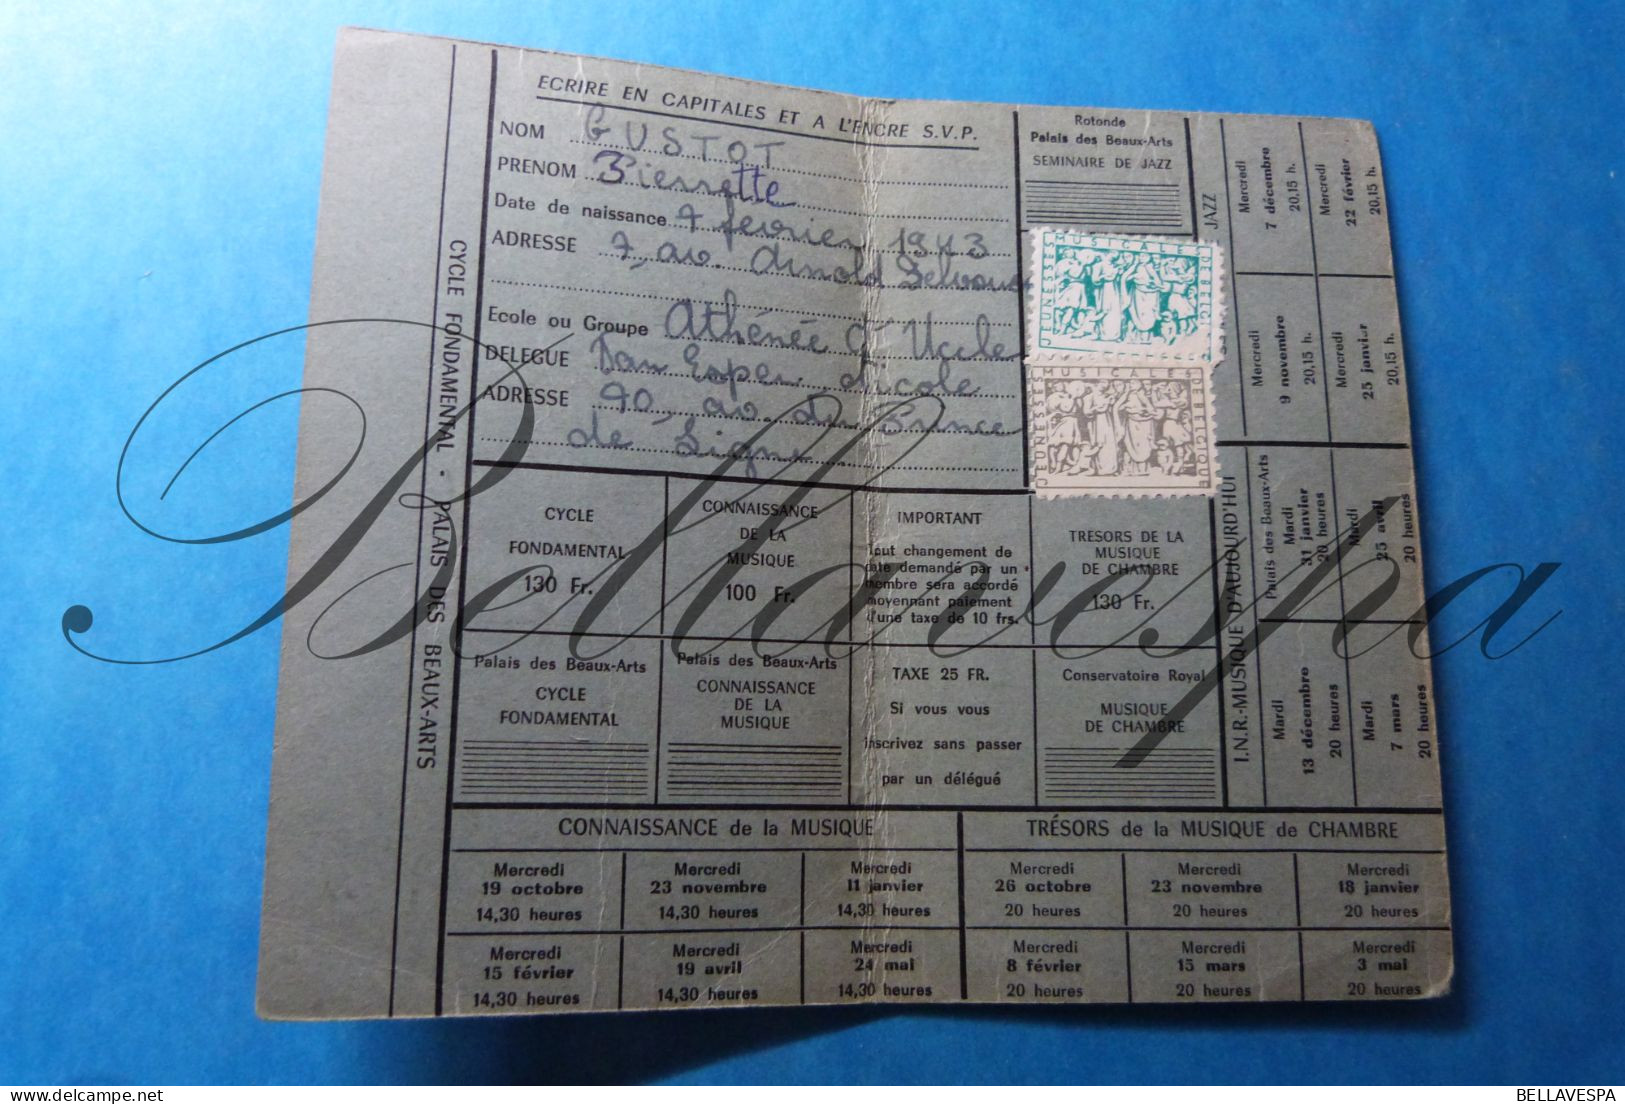 ECRIRE EN CAPITALES ET A L'ENCRE S.V.P.
NOM GUSTOT
PRENOM Pierrette
Date de naissance 7 février 1943
ADRESSE 7, av. Arnold Delvaux
Ecole ou Groupe Athénée d'Uccle
DELEGUE Van Espen Nicole
ADRESSE 90, av. du Prince
de Ligne
CYCLE FONDAMENTAL - PALAIS DES BEAUX-ARTS
Rotonde
Palais des Beaux-Arts
SEMINAIRE DE JAZZ
JEUNESSES MUSICALES DE BELGIQUE
JEUNESSES MUSICALES DE BELGIQUE
JAZZ
Mercredi
7 décembre
20,15 h.
Mercredi
22 février
20,15 h.
Mercredi
9 novembre
20,15 h.
Mercredi
25 janvier
20,15 h.
I.N.R.-MUSIQUE D'AUJOURD'HUI
Palais des Beaux-Arts
Mardi
31 janvier
20 heures
Mardi
25 avril
20 heures
Mardi
13 décembre
20 heures
Mardi
7 mars
20 heures
CYCLE
FONDAMENTAL
130 Fr.
CONNAISSANCE
DE LA
MUSIQUE
100 Fr.
IMPORTANT
Tout changement de
date demandé par un
membre sera accordé
moyennant paiement
d'une taxe de 10 frs.
TRESORS DE LA
MUSIQUE
DE CHAMBRE
130 Fr.
Palais des Beaux-Arts
CYCLE
FONDAMENTAL
Palais des Beaux-Arts
CONNAISSANCE
DE LA
MUSIQUE
TAXE 25 FR.
Si vous vous
inscrivez sans passer
par un délégué
Conservatoire Royal
MUSIQUE
DE CHAMBRE
CONNAISSANCE de la MUSIQUE
Mercredi
19 octobre
14,30 heures
Mercredi
23 novembre
14,30 heures
Mercredi
11 janvier
14,30 heures
Mercredi
15 février
14,30 heures
Mercredi
19 avril
14,30 heures
Mercredi
24 mai
14,30 heures
TRÉSORS de la MUSIQUE de CHAMBRE
Mercredi
26 octobre
20 heures
Mercredi
23 novembre
20 heures
Mercredi
18 janvier
20 heures
Mercredi
8 février
20 heures
Mercredi
15 mars
20 heures
Mercredi
3 mai
20 heures
Bellavespa
BELLAVESPA